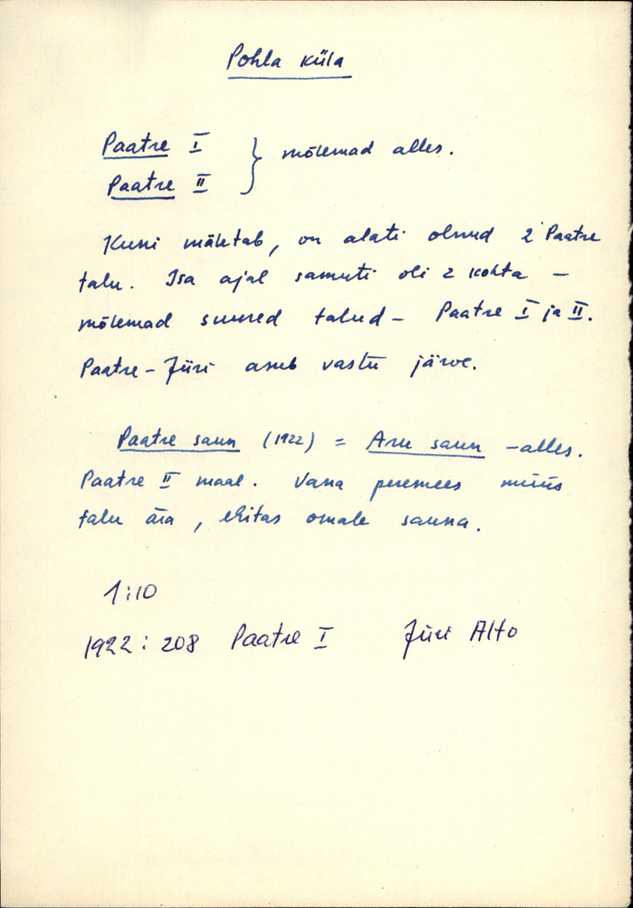 Pohla küla
Paatre I } mõlemad alles.
Paatre II
Kuni mäletab, on alati olnud 2 Paatre
talu. Isa ajal samuti oli 2 kohta –
mõlemad suured talud – Paatre I ja II.
Paatre-Jüri asub vastu järve.
Paatre saun (1922) = Aru saun – alles.
Paatre II maal. Vana peremees müüs
talu ära, ehitas omale sauna.
1:10
1922: 208 Paatre I Jüri Alto